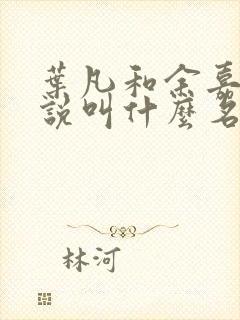 葉凡和余嘉
說叫什麼名
林河